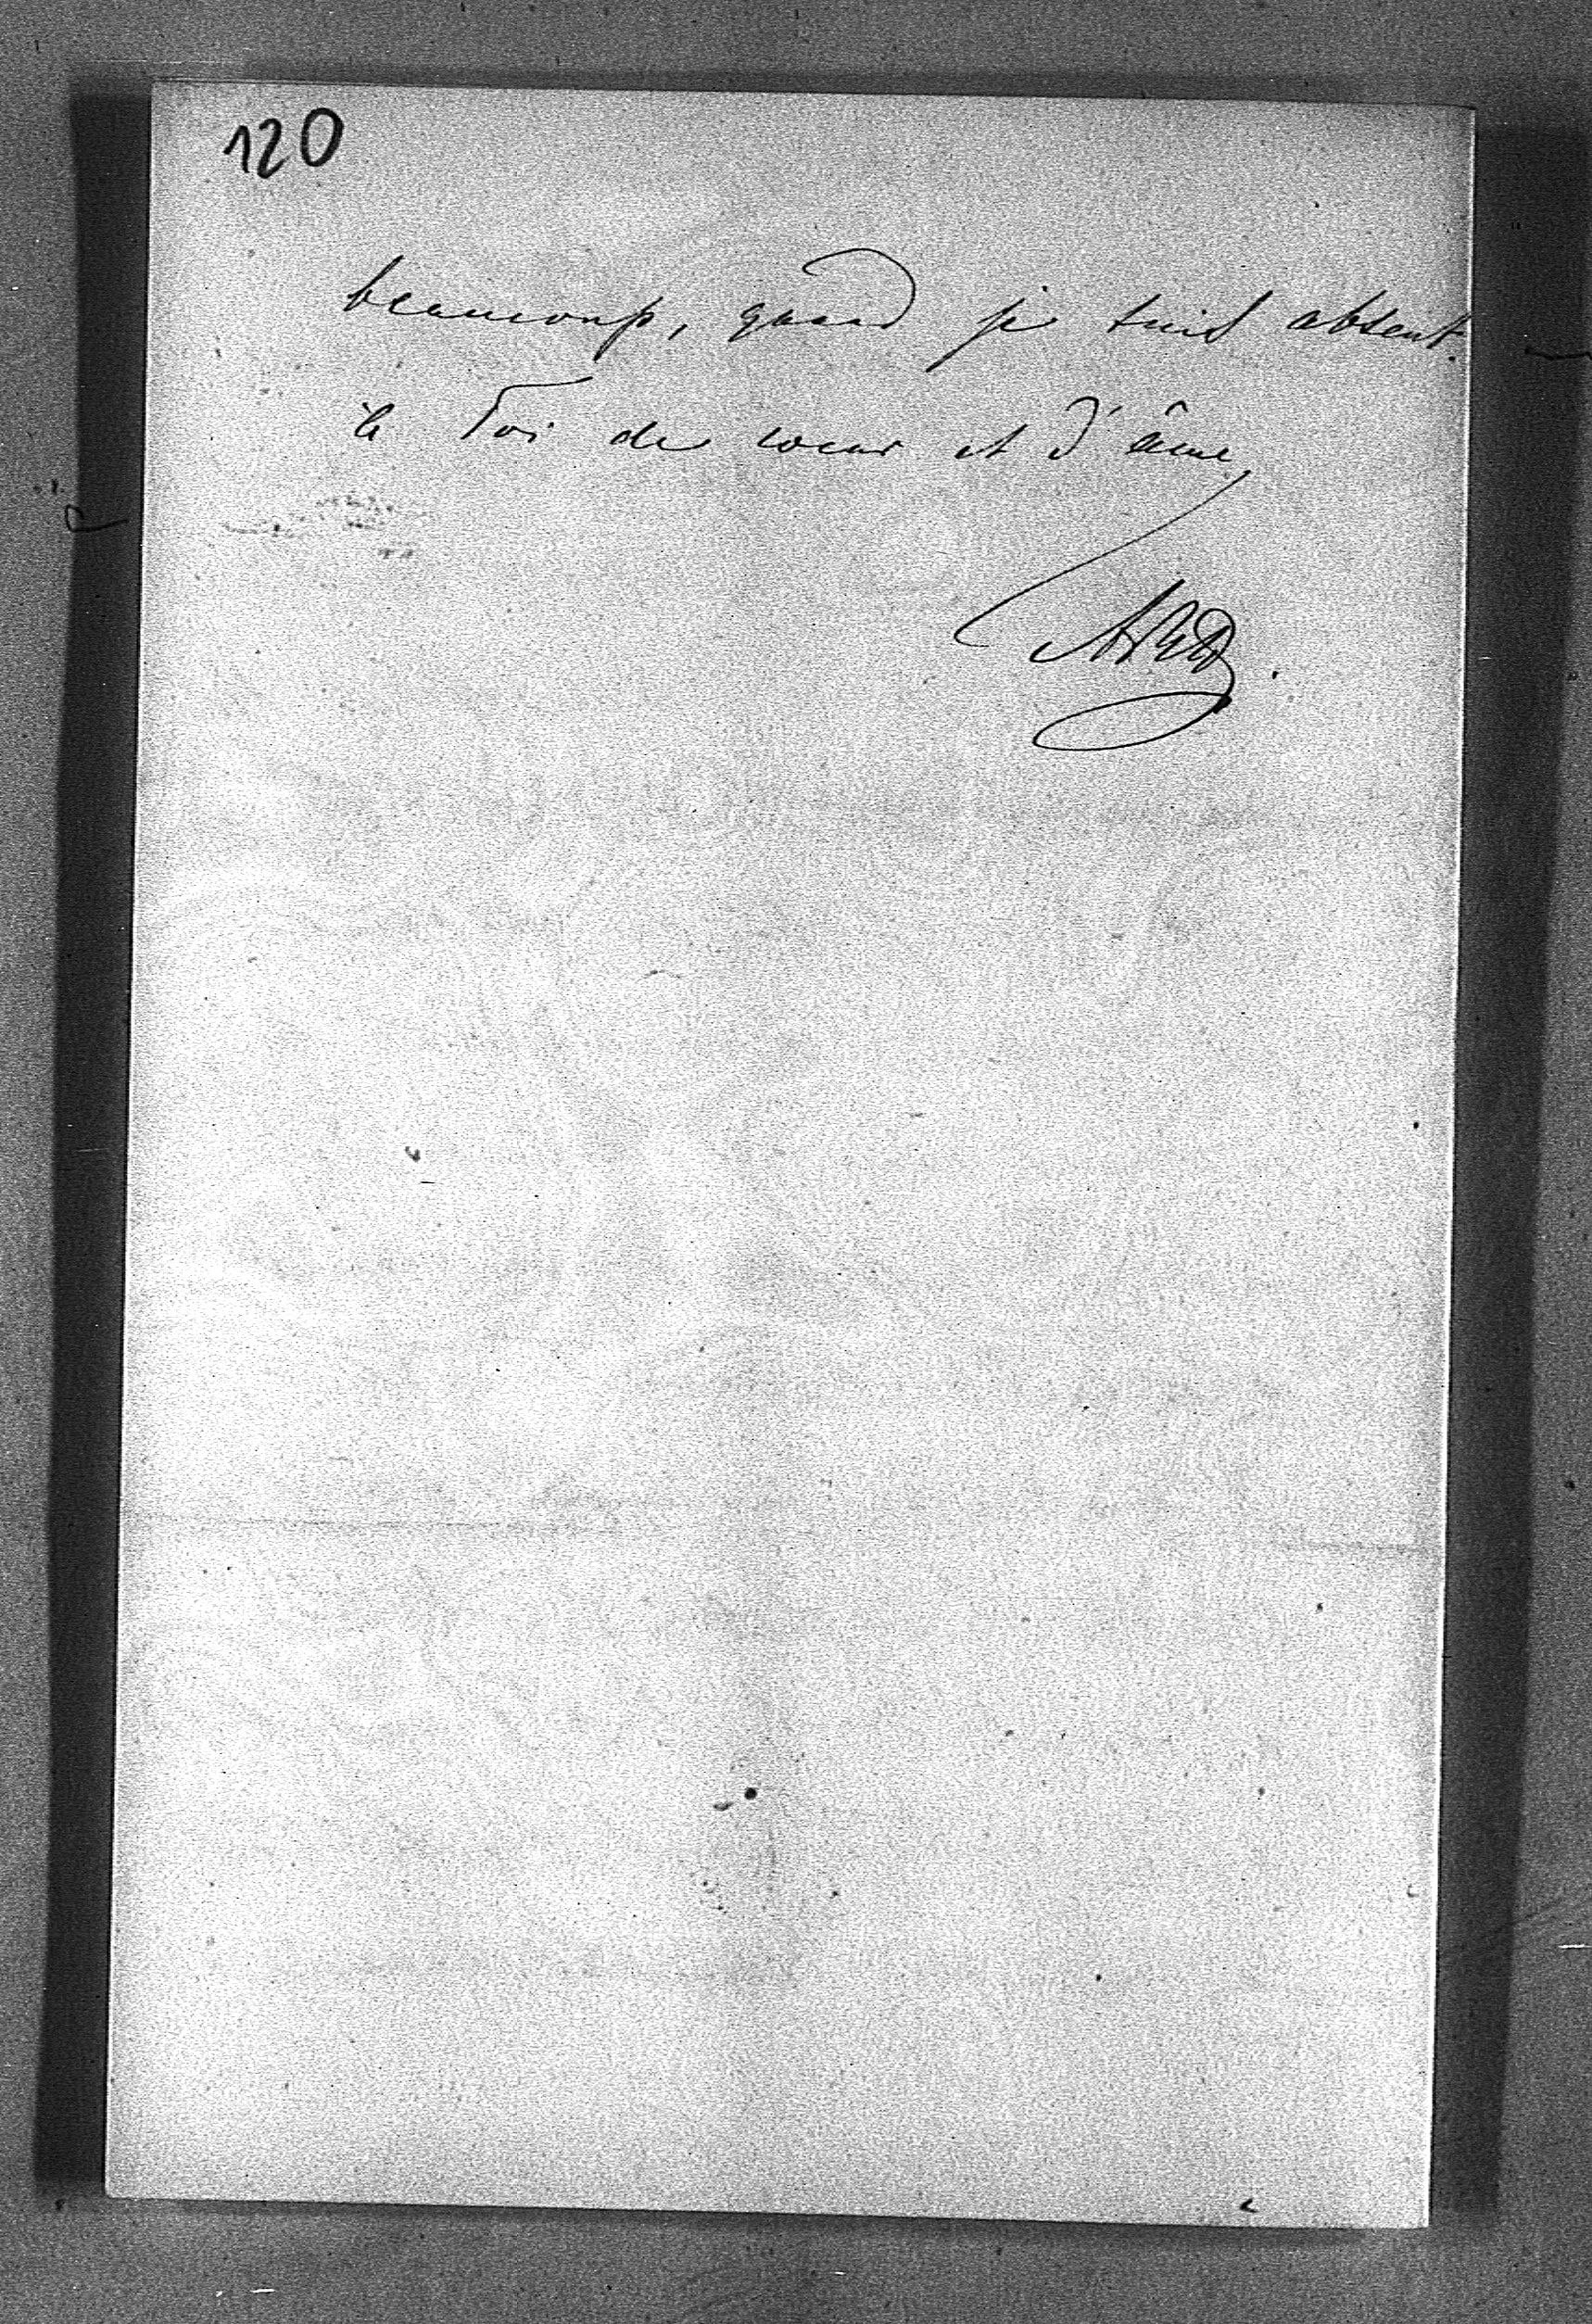 120
beaucoup, quand je suis absent.
à Toi de cœur et d'âme,